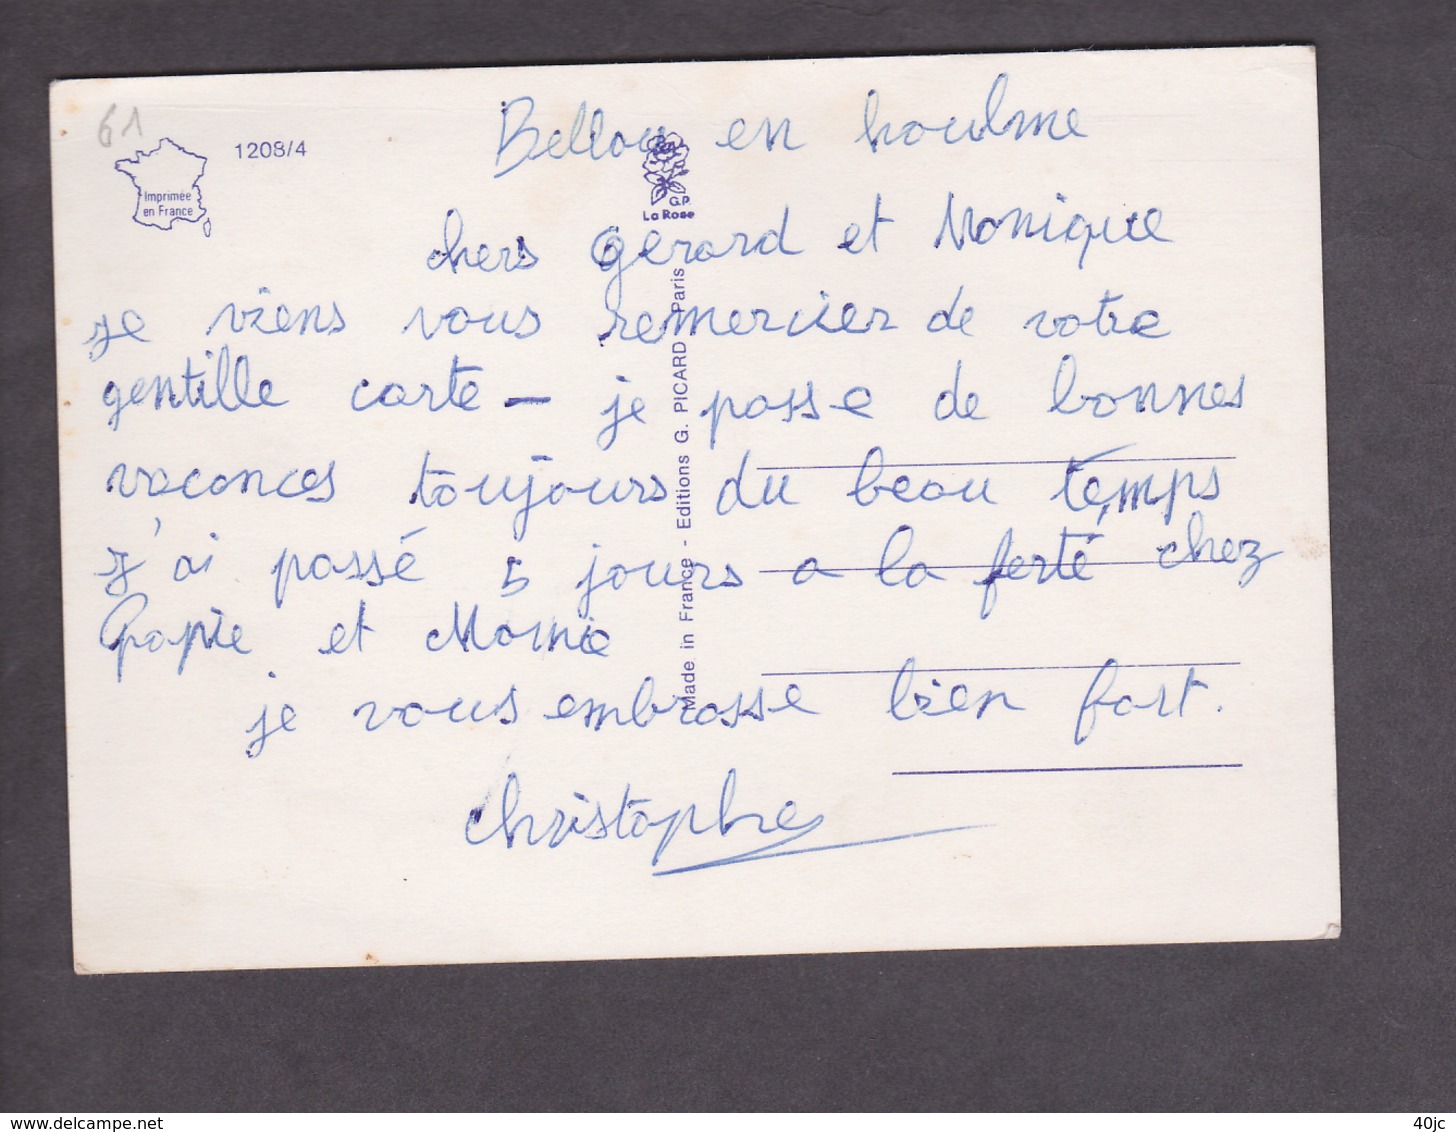 61
1208/4
Imprimée
en France
G.P
La Rose
Made in France - Editions G. PICARD Paris
Bellou en houlme
chers Gerard et Monique
je viens vous remercier de votre
gentille carte - je passe de bonnes
vacances toujours du beau temps
j'ai passé 5 jours a la ferté chez
Papie et Mamie
je vous embrasse bien fort.
Christophe
www.delcampe.net
40jc